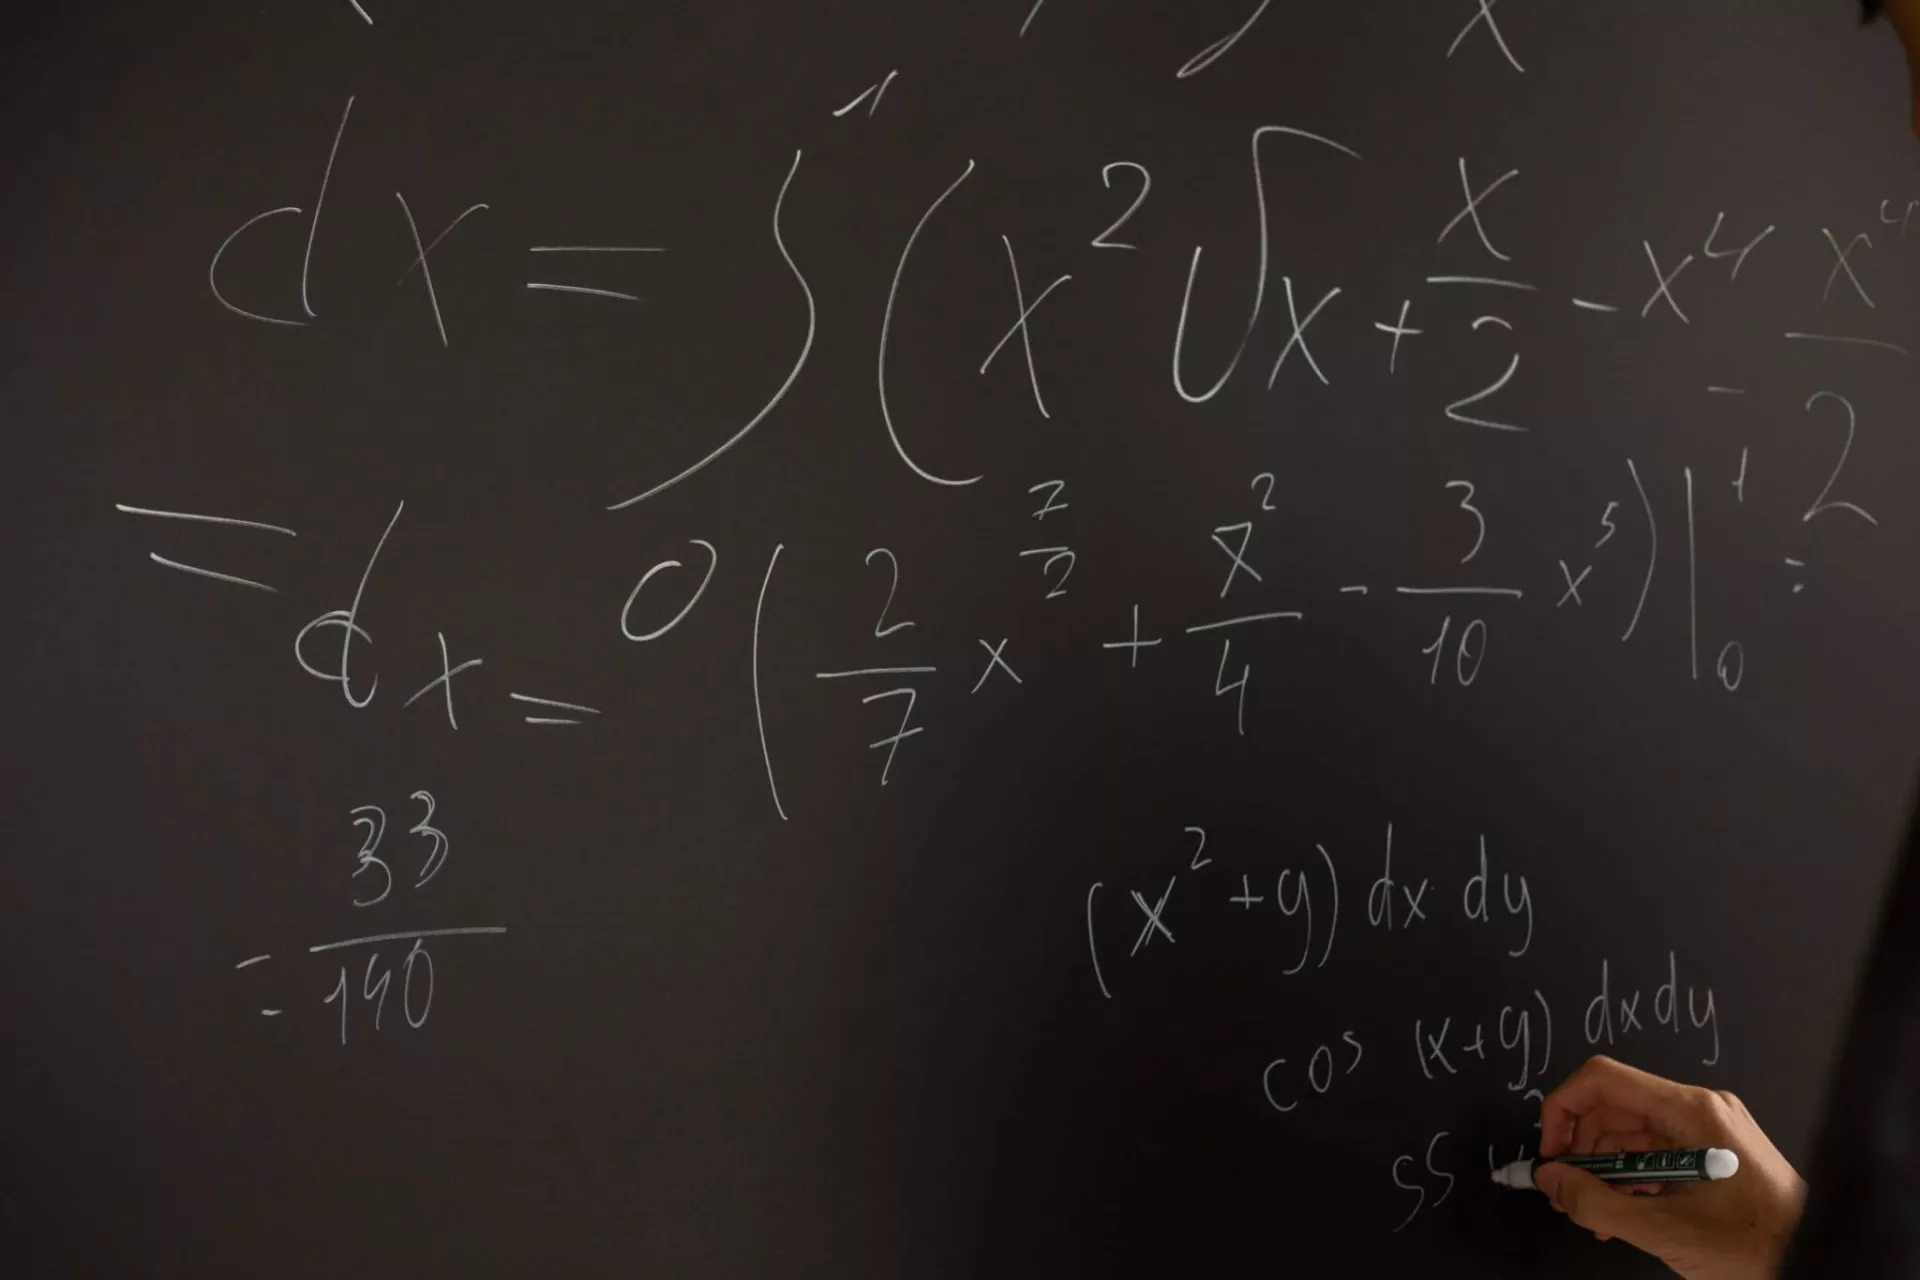 x
dx = ∫₀¹ (x²√x + x/2 - x⁴ - x⁴/2
= dx = (2/7 x^(7/2) + x²/4 - 3/10 x⁵)|₀¹ =
= 33/140
(x² + y) dx dy
cos (x+y) dxdy